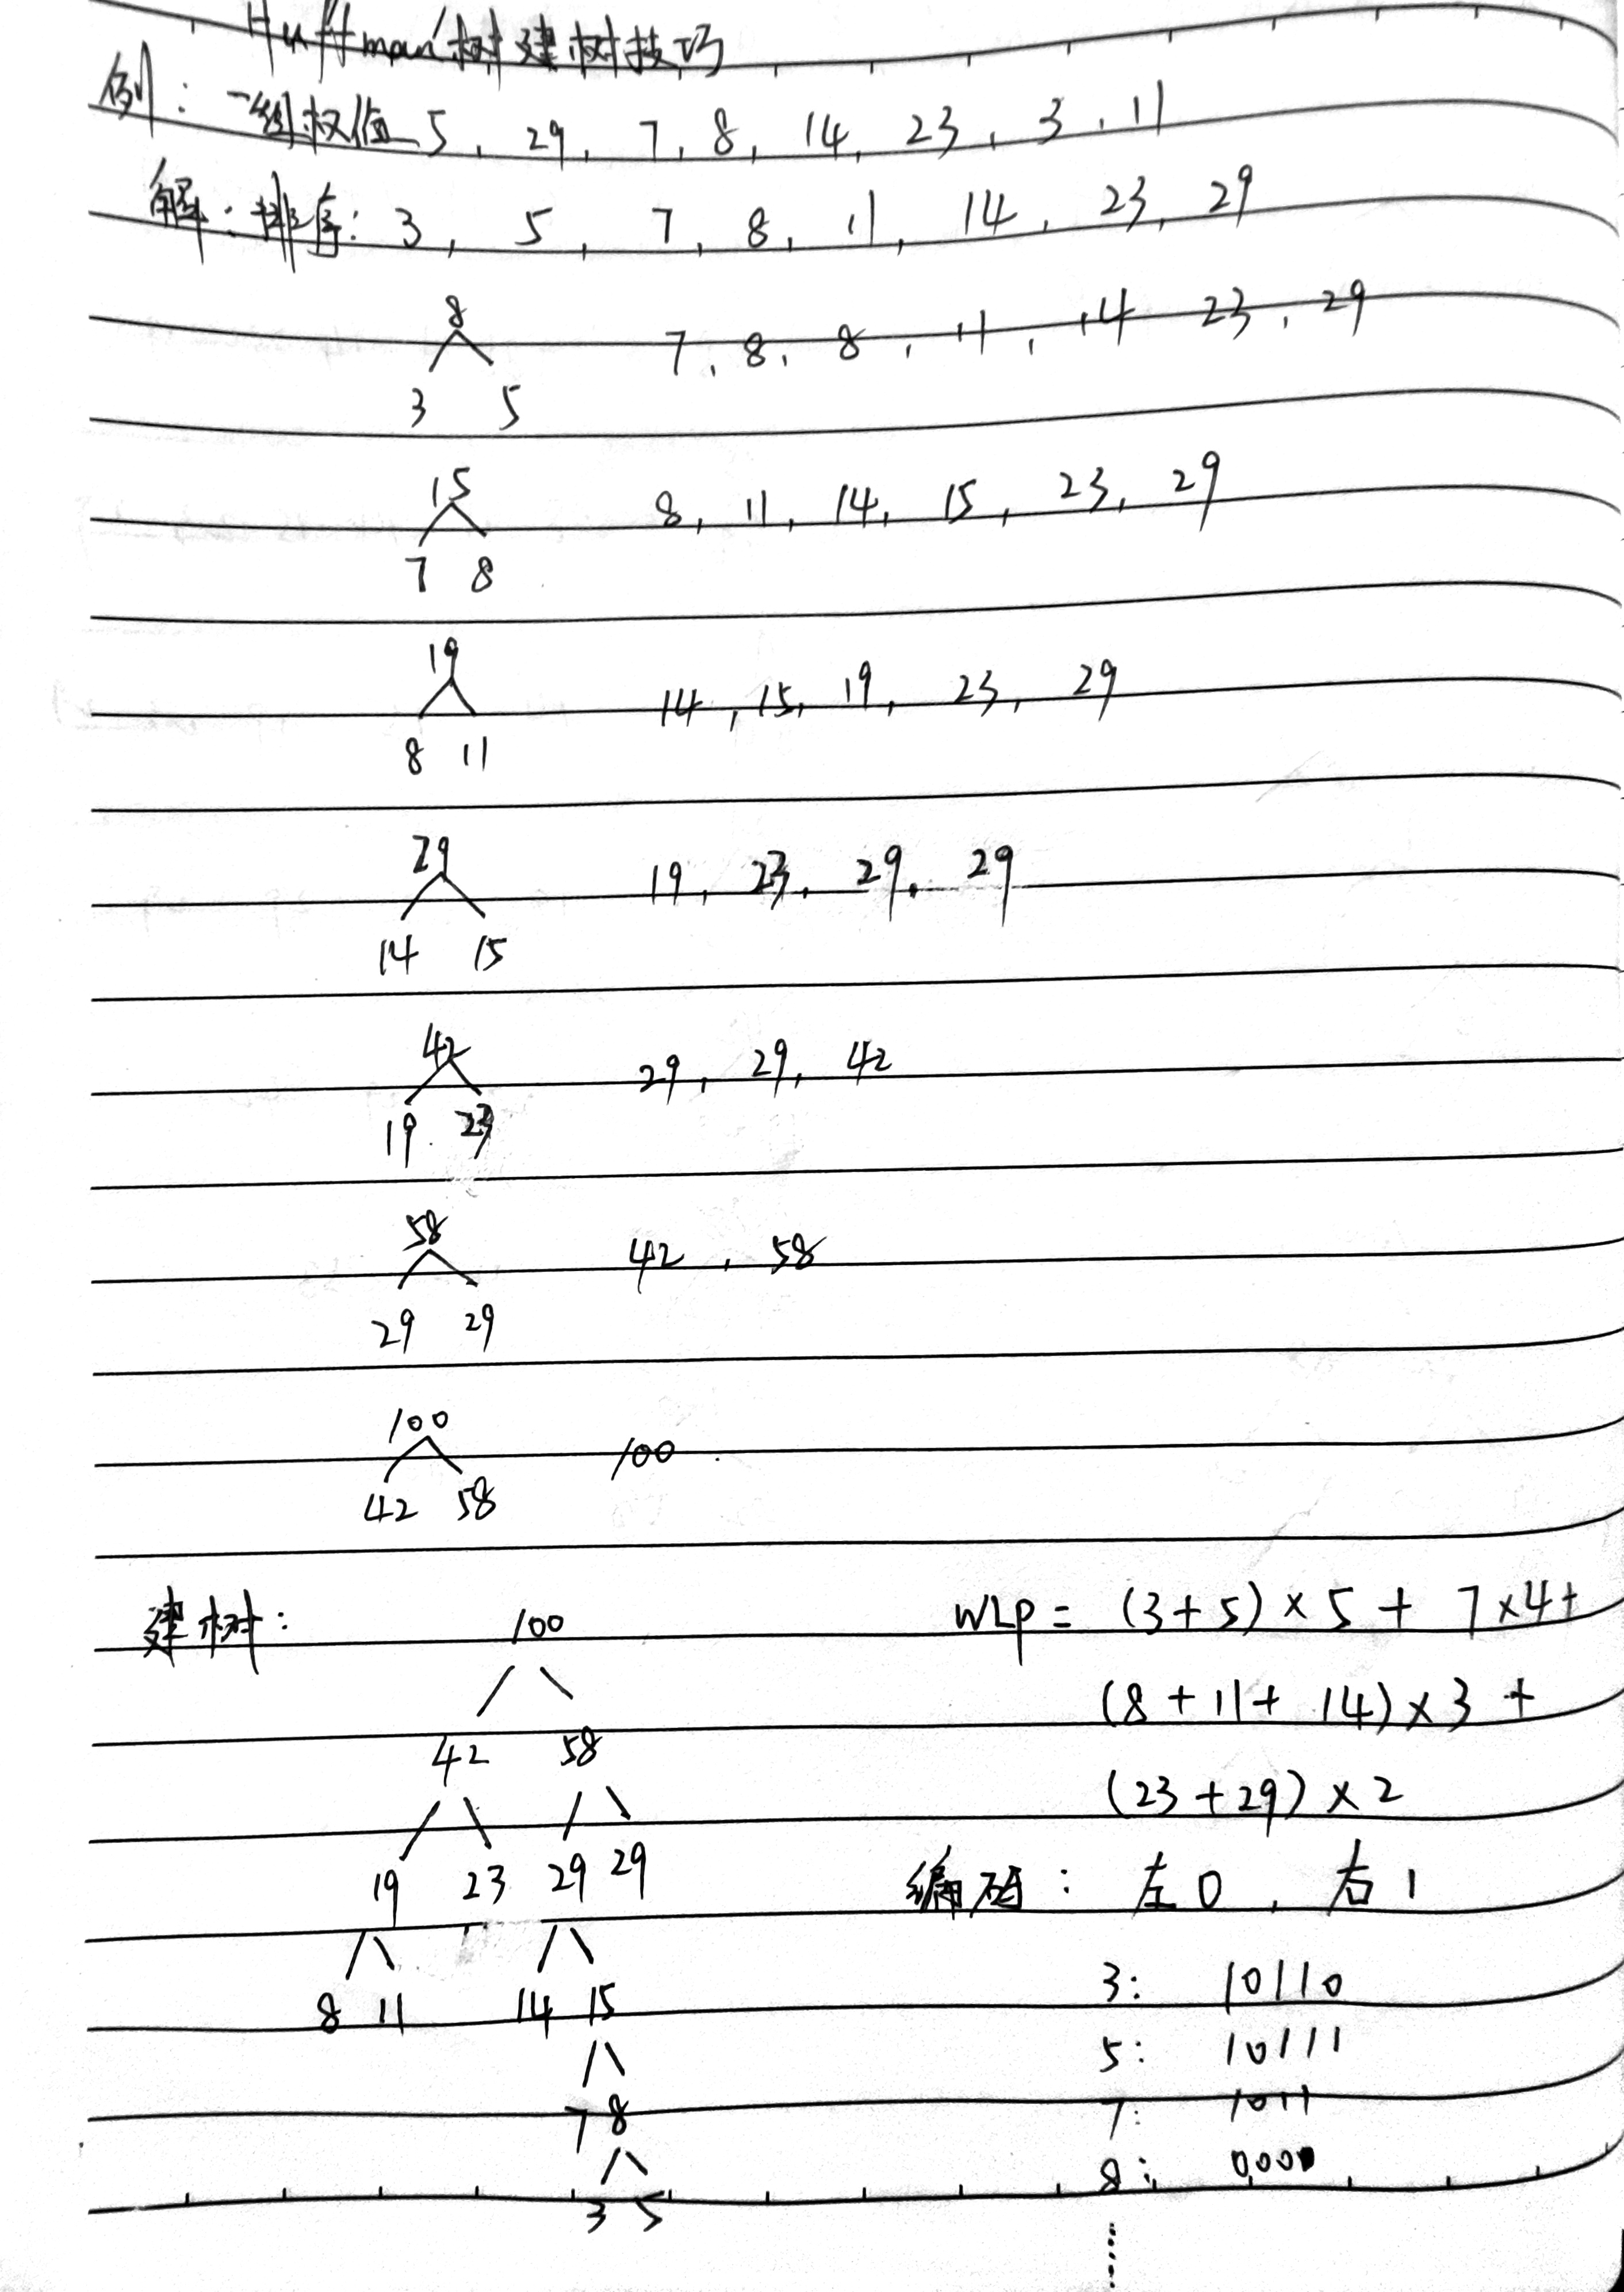 Huffman树建树技巧
例：一组权值 5, 29, 7, 8, 14, 23, 3, 11
解：排序：3, 5, 7, 8, 11, 14, 23, 29
8
7, 8, 8, 11, 14 23, 29
3 5
15
8, 11, 14, 15, 23, 29
7 8
19
14, 15, 19, 23, 29
8 11
29
19, 23, 29, 29
14 15
42
29, 29, 42
19 23
58
42, 58
29 29
100
100
42 58
建树：
100
42 58
19 23 29 29
8 11 14 15
7 8
3 5
WLP = (3+5)×5 + 7×4+
(8+11+14)×3 +
(23+29)×2
编码：左0，右1
3: 10110
5: 10111
7: 1011
8:
……